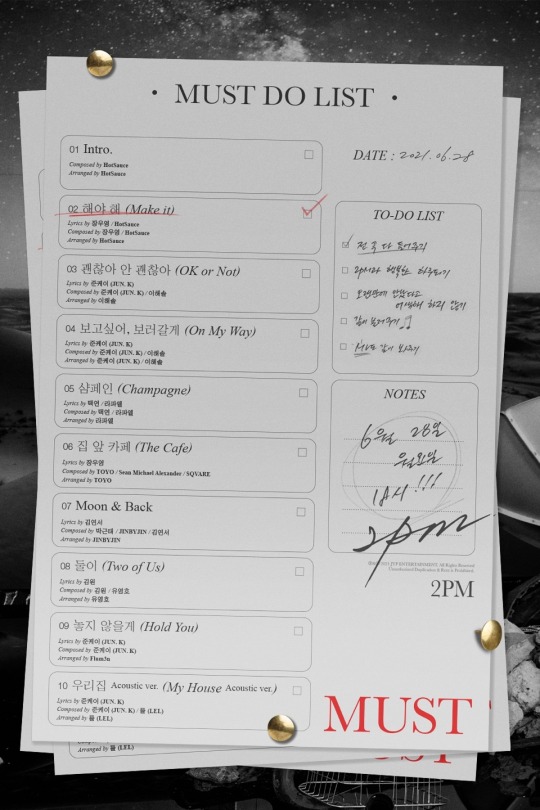 • MUST DO LIST •
01 Intro.
Composed by HotSauce
Arranged by HotSauce
02 해야 해 (Make it)
Lyrics by 장우영 / HotSauce
Composed by 장우영 / HotSauce
Arranged by HotSauce
03 괜찮아 안 괜찮아 (OK or Not)
Lyrics by 준케이 (JUN. K)
Composed by 준케이 (JUN. K) / 이해솔
Arranged by 이해솔
04 보고싶어, 보러갈게 (On My Way)
Lyrics by 준케이 (JUN. K)
Composed by 준케이 (JUN. K) / 이해솔
Arranged by 준케이 (JUN. K) / 이해솔
05 샴페인 (Champagne)
Lyrics by 택연 / 라파엘
Composed by 택연 / 라파엘
Arranged by 라파엘
06 집 앞 카페 (The Cafe)
Lyrics by 장우영
Composed by TOYO / Sean Michael Alexander / SQVARE
Arranged by TOYO
07 Moon & Back
Lyrics by 김연서
Composed by 박근태 / JINBYJIN / 김연서
Arranged by JINBYJIN
08 둘이 (Two of Us)
Lyrics by 김원
Composed by 김원 / 유영호
Arranged by 유영호
09 놓지 않을게 (Hold You)
Lyrics by 준케이 (JUN. K)
Composed by 준케이 (JUN. K)
Arranged by Flam3u
10 우리집 Acoustic ver. (My House Acoustic ver.)
Lyrics by 준케이 (JUN. K)
Composed by 준케이 (JUN. K) / 뜰 (LEL)
Arranged by 뜰 (LEL)
DATE : 2021. 06. 28
TO-DO LIST
전 곡 다 들어주기
행복한 하루되기
오랜만에 만났다고 어색해 하지 않기
같이 불러주기
같이 봐주기
NOTES
6월 28일
월요일
1A시 !!!
2pm
2PM
MUST
Arranged by 뜰 (LEL)
MUST